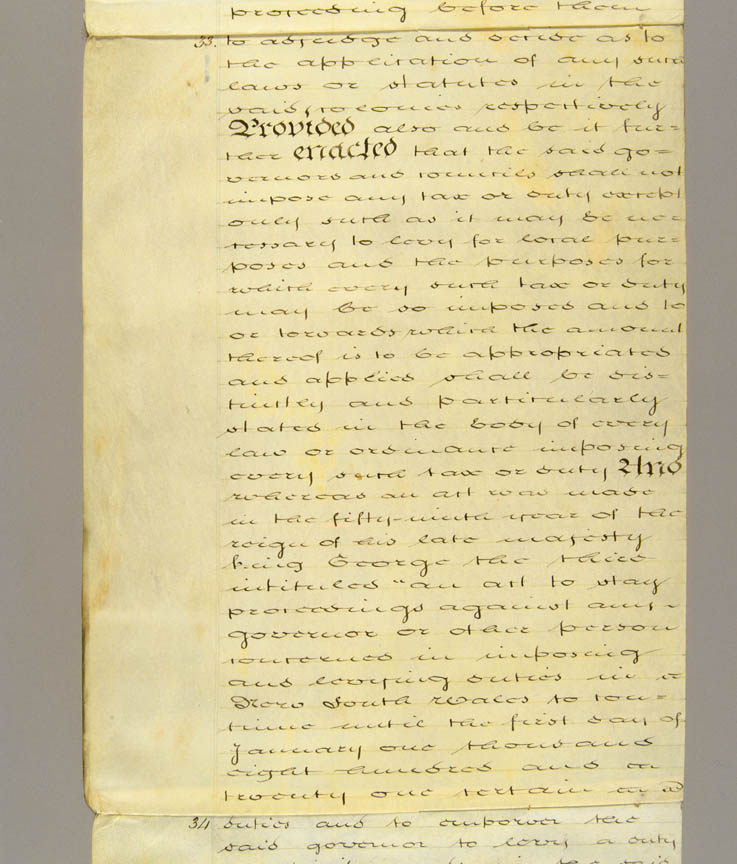 proceeding before them
33. to adjudge and decide as to
the application of any such
laws or statutes in the
said colonies respectively
Provided also and be it fur=
ther enacted that the said go=
vernors and councils shall not
impose any tax or duty except
only such as it may be ne=
cessary to levy for local pur=
poses and the purposes for
which every such tax or duty
may be so imposed and to
or towards which the amount
thereof is to be appropriated
and applied shall be dis=
tinctly and particularly
stated in the body of every
law or ordinance imposing
every such tax or duty And
whereas an act was made
in the fifty-ninth year of the
reign of his late majesty
king George the third
intituled "an act to stay
proceedings against any
governor or other person
concerned in imposing
and levying duties in
New South Wales to con=
tinue until the first day of
January one thousand
eight hundred and
twenty one certain
34 duties and to empower the
said governor to levy a duty
the said